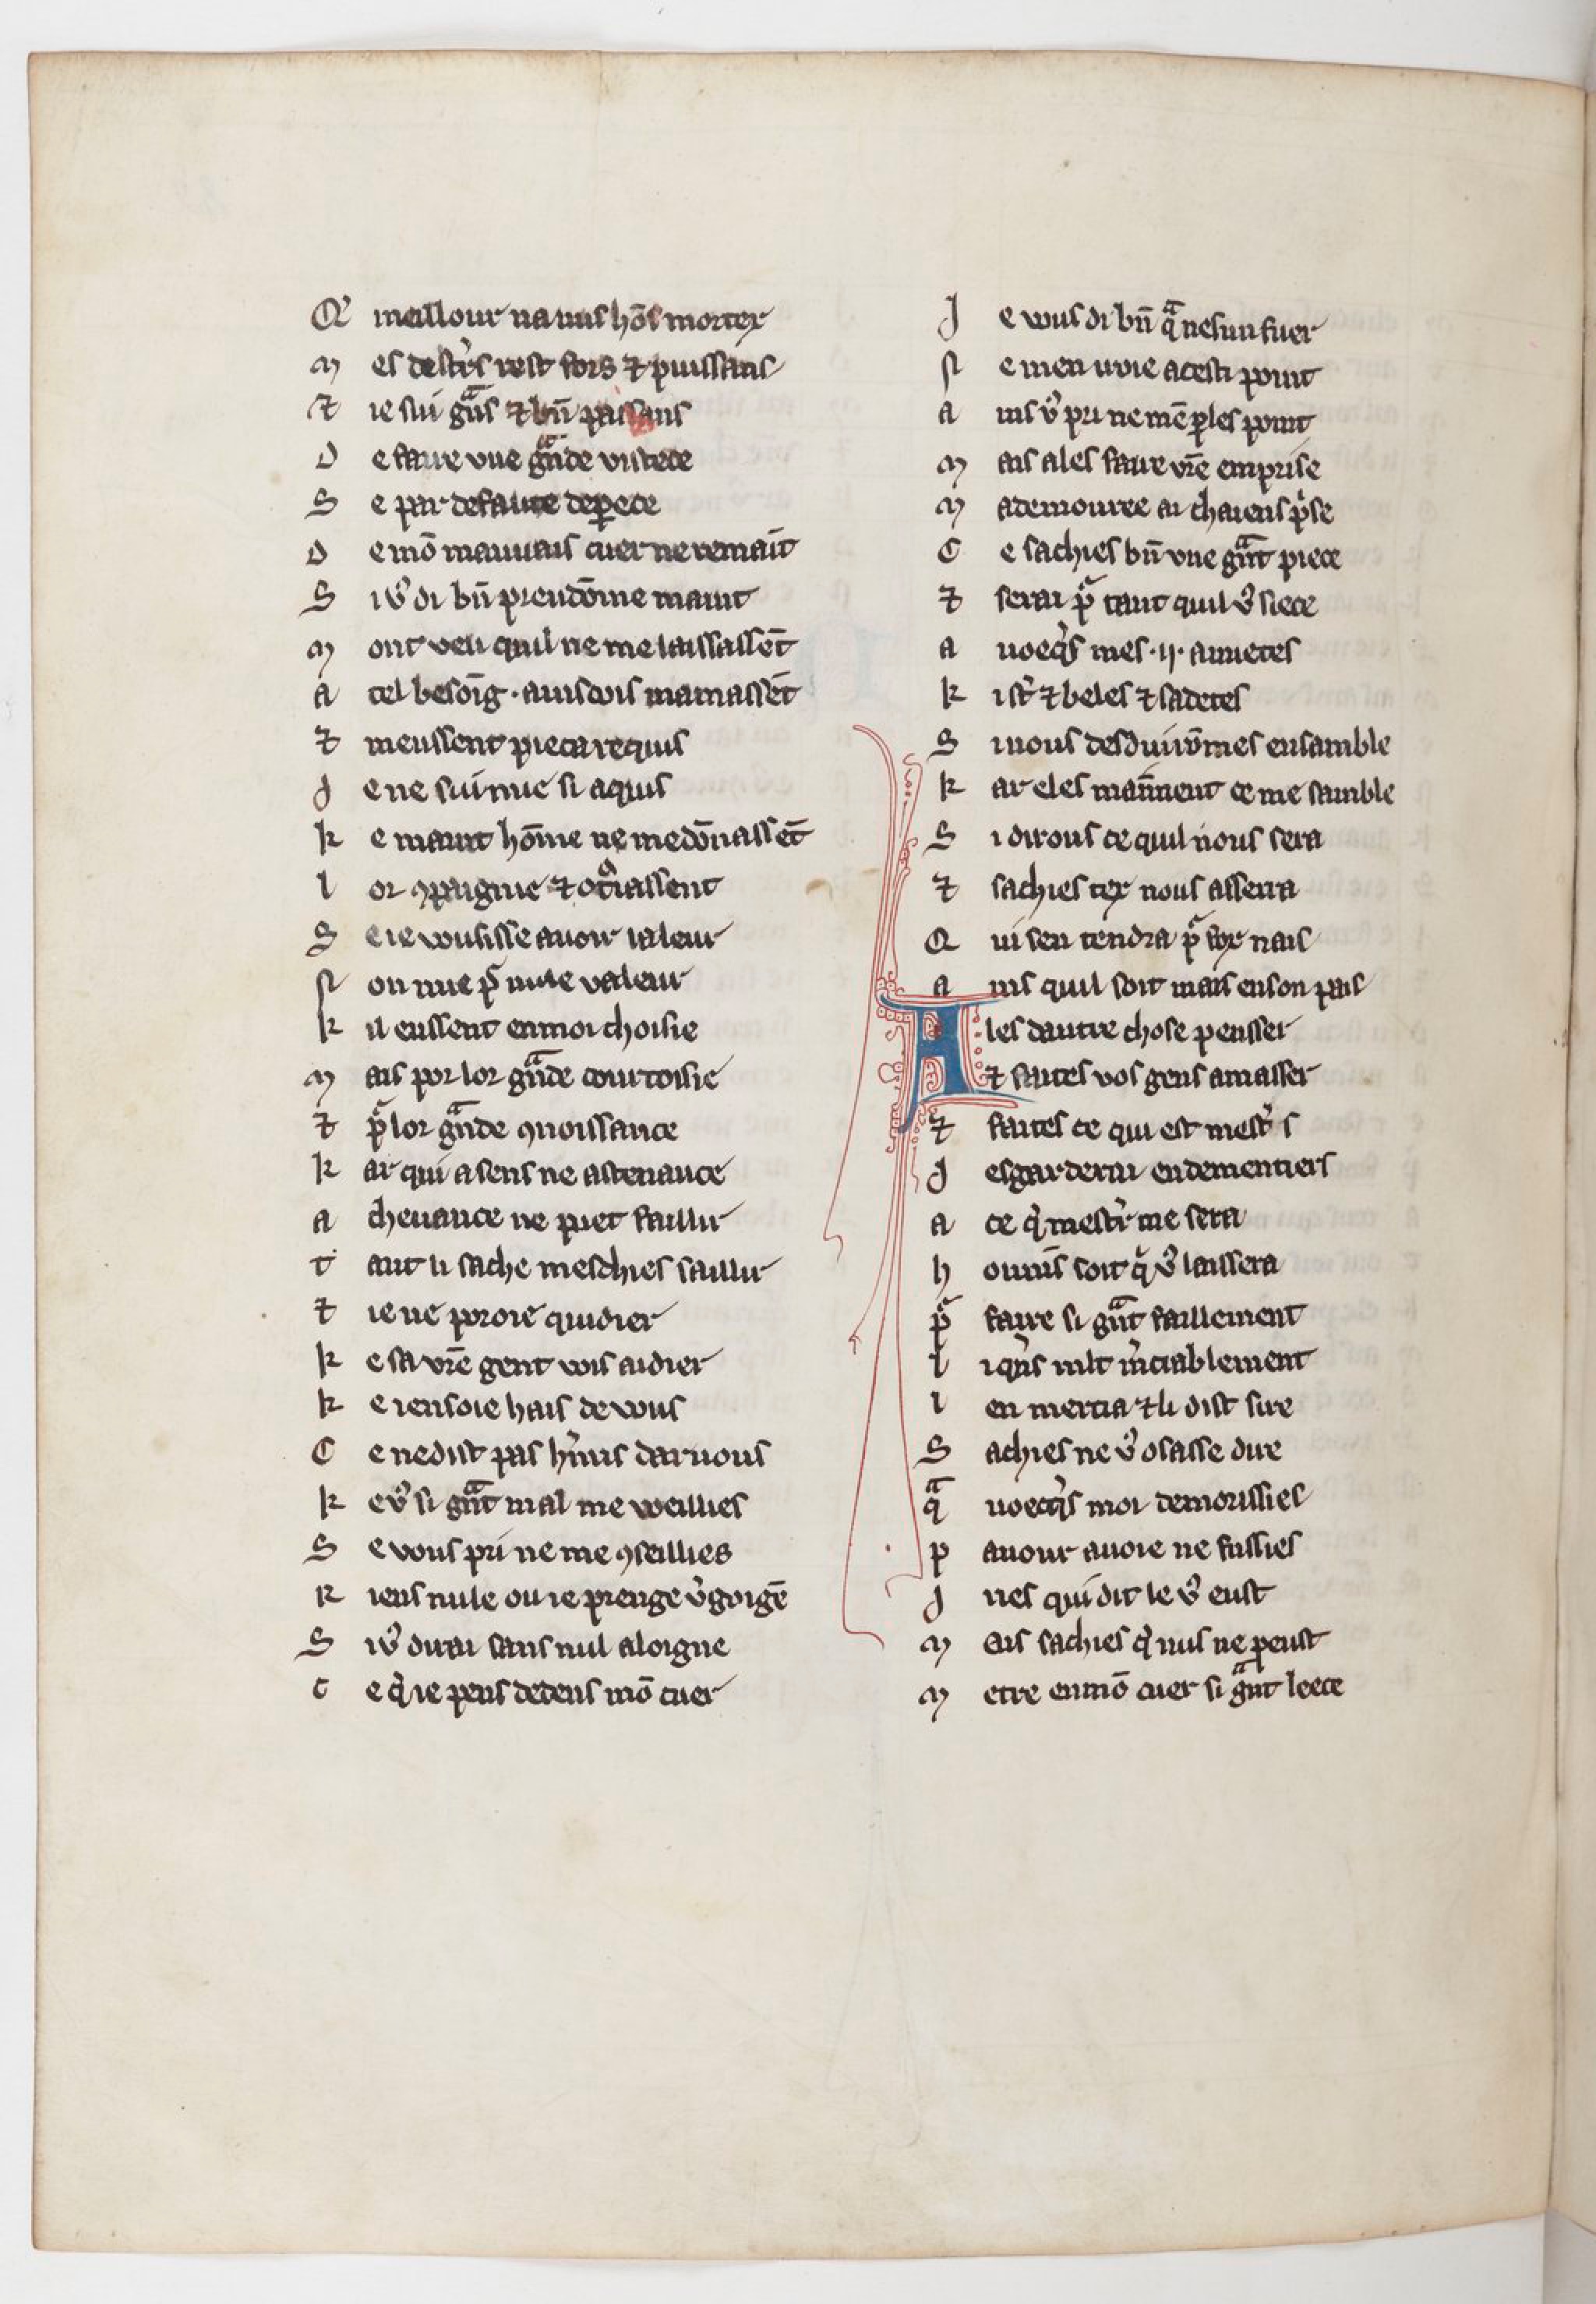 Q' meillour na nus hōs mortex
M es destrꝰs rest fors ⁊ puissans
⁊ ie sui gͣns ⁊ bn̄ paissans
D e faire vne gͣnde vistece
S e par defaute deꝑece
D e mō mauuais cuer ne remait
S i vꝰ di bn̄ preudōme maint
M ont veu quil ne me laissassēt
A tel besoīg · ainscois mamassēt
⁊ meussent pieca requis
J e ne sui mie si aquis
K e maint hōme ne me dōnassēt
L or ꝯpaignie ⁊ otͥassent
S e ie vousisse auoir ialeur
N on mie pͬ nule valeur
K il eussent en moi choisie
M ais por lor gͣnde courtoisie
⁊ pͬ lor gͣnde ꝯnoissance
K ar qui a sens ne astenance
A cheuance ne puet faillir
T ant li sache meschies saillir
⁊ ie ne poroie quidier
K e sa vr̄e gent vois aidier
K e ien soie hais de vous
C e ne dist pas hn̄us daruous
K e vꝰ si gͣnt mal me veillies
S e vous pri ne me ꝯseillies
R iens nule ou ie prenge vgoigē
S i vꝰ dirai sans nul aloigne
C e qͥ ie pens dedens mō cuer
J e vous di bn̄ qͣ nesun fuer
N e men iroie a cesti point
A ins vꝰ pri ne mē ꝑles point
M ais ales faire vr̄e emprise
M a demouree ai chaiens pͥse
C e sachies bn̄ vne gͣnt piece
⁊ serai pͬ tant quil vꝰ siece
A uoecqͥs mes ·ij· amietes
K i st̄ ⁊ beles ⁊ sadetes
S i nous desduirōmes ensamble
K ar eles mainnent ce me samble
S i dirons ce quil nous sera
⁊ sachies tex nous asserra
Q ui sen tendra pͬ fox nais
A ins quil soit mais en son pais
A les dautre chose pensser
⁊ faites vos gens amasser
⁊ faites ce qui est mestꝰs
J esgarderai endementiers
A ce qͥ mestꝰ me sera
H ounis soit qͥ vꝰ laissera
Pͬ faire si gͣnt faillement
L i qͥns mlt mͥciablement
L en mercia ⁊ li dist sire
S achies ne vꝰ osasse dire
Qͣ uoecqͥs moi demorissies
P auour auoie ne fussies
J ries qui dit le vꝰ eust
M ais sachies qͥ nus ne peust
M etre en mō cuer si gͣnt leece